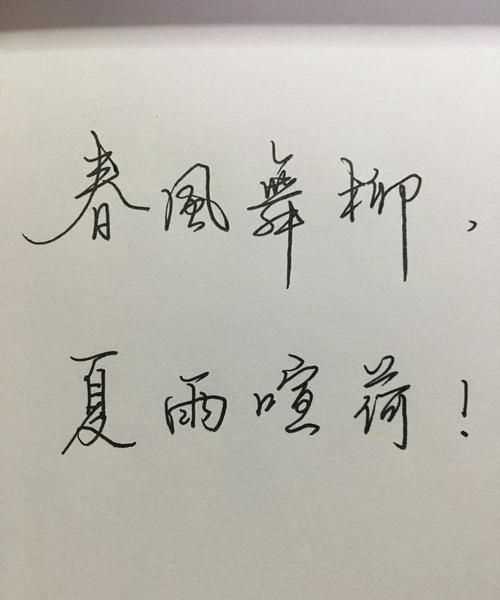 春風舞柳，
夏雨喧荷！